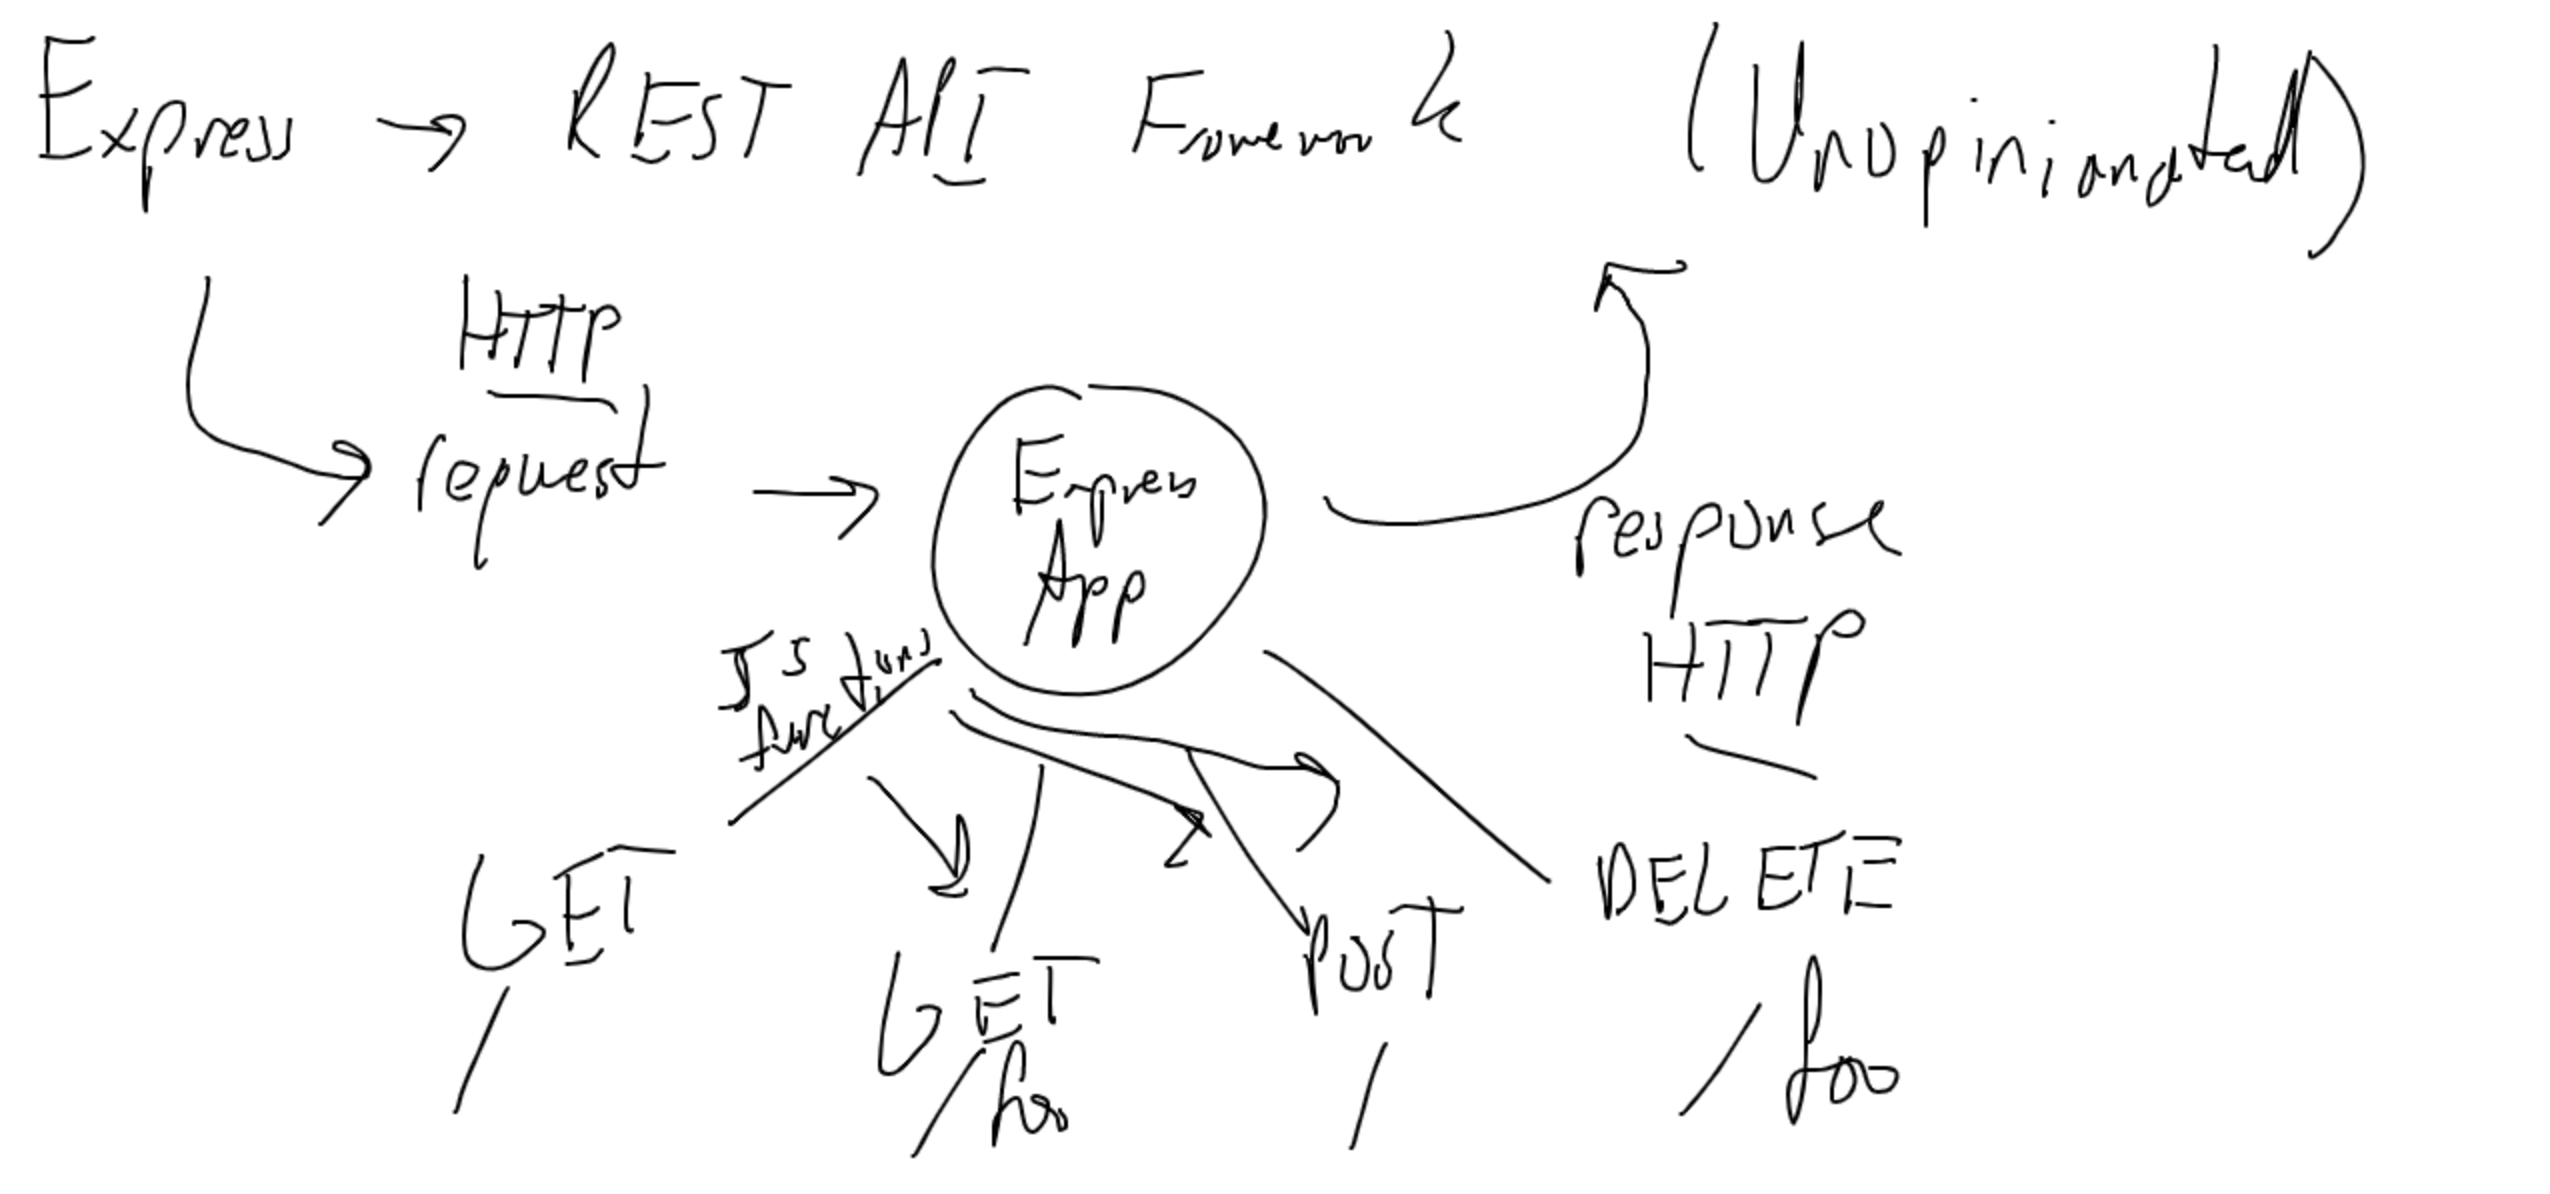 Express → REST API Framework (Unopinianated)
HTTP
request → Express
App
response
HTTP
JS
functions
GET
/
GET
/foo
POST
/
DELETE
/foo